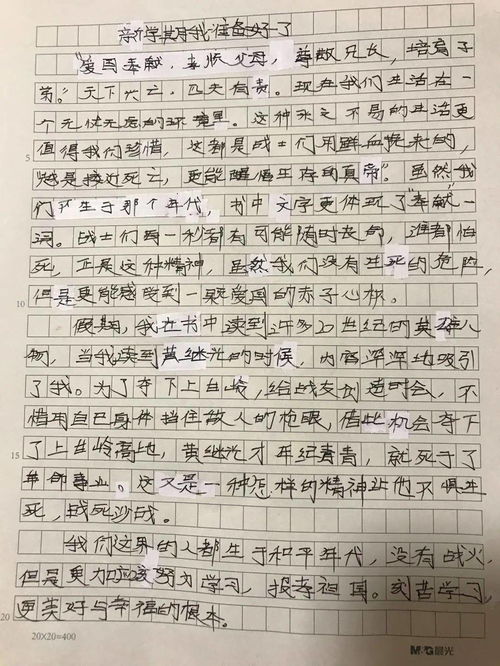 新学期我准备好了
"爱国奉献,孝顺父母,尊敬兄长,培育子
弟。"天下兴亡,匹夫有责。现在我们生活在一
个无忧无虑的环境里。这种来之不易的生活更
值得我们珍惜,这都是战士们用鲜血换来的,
越是接近死亡,更能醒悟生存的真帝。虽然我
们不生于那个年代,书中文字更体现了"奉献"一
词。战士们每一秒都有可能随时丧命,谁都怕
死,正是这种精神,虽然我们没有生死的危险,
但是更能感受到一颗爱国的赤子心怀。
假期,我在书中读到许多20世纪的英雄人
物,当我读到黄继光的时候,内容深深地吸引
了我。为了夺下上甘岭,给战友创造时会,不
惜用自己身体挡住敌人的枪眼,借此机会夺下
了上甘岭高地,黄继光才年纪青青,就死于了
革命事业。这又是一种怎样的精神让他不惧生
死,战死沙战。
我们这里的人都生于和平年代,没有战火,
但是更加应该努力学习,报孝祖国。刻苦学习,
更美好与幸福的根本。
5
10
15
20
20×20=400
M&G晨光